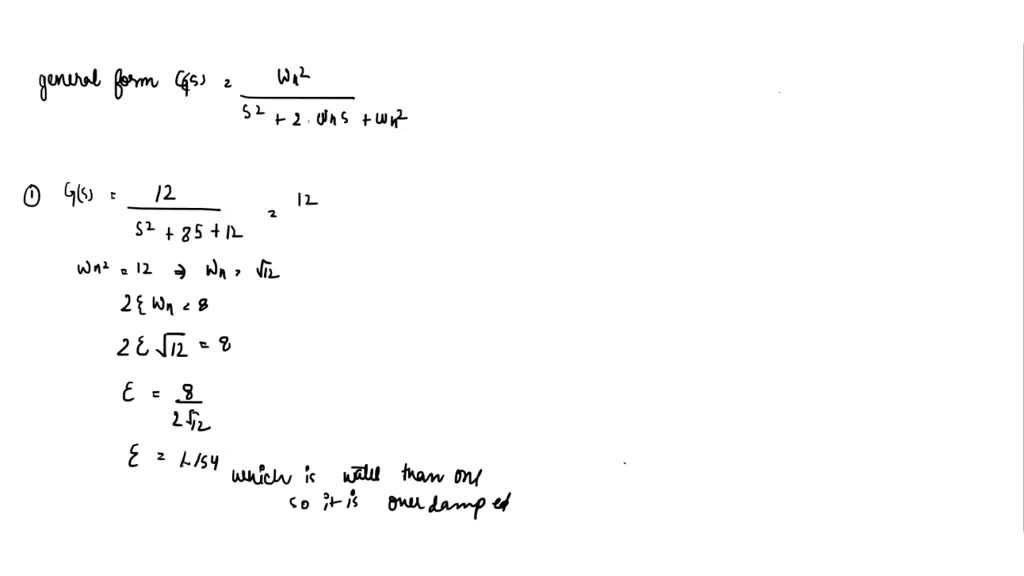 general form G(s) = ωn² / s² + 2 . ωn s + ωn²
① G(s) = 12 / s² + 8s + 12 = 12
ωn² = 12 ⇒ ωn = √12
2ξ ωn = 8
2ξ √12 = 8
ξ = 8 / 2√12
ξ = 1.154 which is than one
so it is over damped